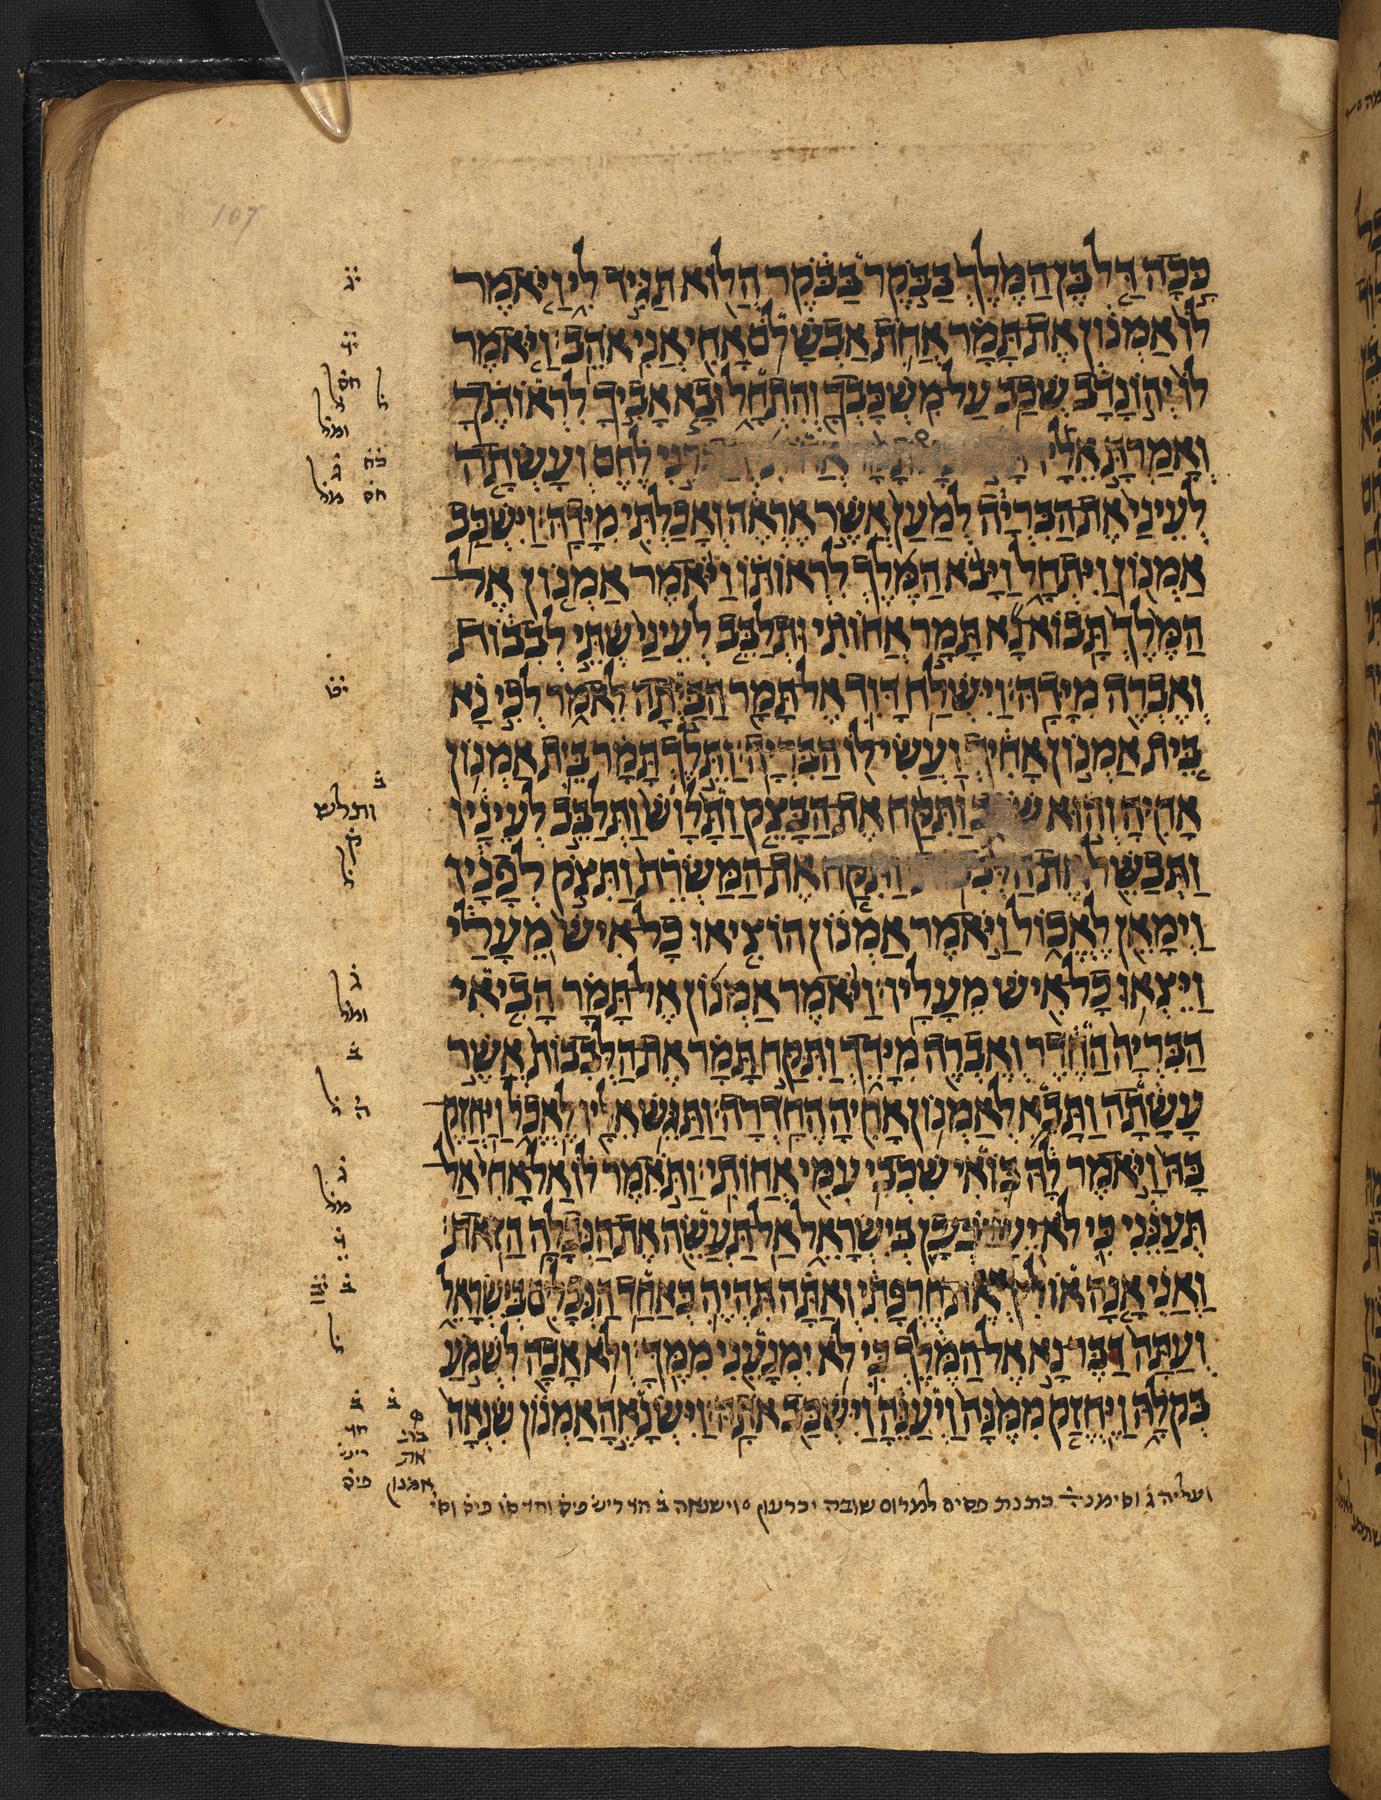 107
כָּכָה דַּל בֶּן הַמֶּלֶךְ בַּבֹּקֶר בַּבֹּקֶר הֲלוֹא תַּגִּיד לִי וַיֹּאמֶר
לוֹ אַמְנוֹן אֶת תָּמָר אֲחֹת אַבְשָׁלֹם אָחִי אֲנִי אֹהֵב׃ וַיֹּאמֶר
לוֹ יְהוֹנָדָב שְׁכַב עַל מִשְׁכָּבְךָ וְהִתְחָל וּבָא אָבִיךָ לִרְאוֹתֶךָ
וְאָמַרְתָּ אֵלָיו תָּמָר לֶחֶם וְעָשְׂתָה
לְעֵינַי אֶת הַבִּרְיָה לְמַעַן אֲשֶׁר אֶרְאֶה וְאָכַלְתִּי מִיָּדָהּ׃ וַיִּשְׁכַּב
אַמְנוֹן וַיִּתְחָל וַיָּבֹא הַמֶּלֶךְ לִרְאוֹתוֹ וַיֹּאמֶר אַמְנוֹן אֶל
הַמֶּלֶךְ תָּבוֹא נָא תָּמָר אֲחוֹתִי וּתְלַבֵּב לְעֵינַי שְׁתֵּי לְבִבוֹת
וְאֶבְרֶה מִיָּדָהּ׃ וַיִּשְׁלַח דָּוִד אֶל תָּמָר הַבַּיְתָה לֵאמֹר לְכִי נָא
בֵּית אַמְנוֹן אָחִיךְ וַעֲשִׂי לוֹ הַבִּרְיָה׃ וַתֵּלֶךְ תָּמָר בֵּית אַמְנוֹן
אָחִיהָ וְהוּא שֹׁכֵב וַתִּקַּח אֶת הַבָּצֵק וַתָּלוֹשׁ וַתְּלַבֵּב לְעֵינָיו
וַתְּבַשֵּׁל אֶת הַלְּבִבוֹת׃ וַתִּקַּח אֶת הַמַּשְׂרֵת וַתִּצֹק לְפָנָיו
וַיְמָאֵן לֶאֱכוֹל וַיֹּאמֶר אַמְנוֹן הוֹצִיאוּ כָל אִישׁ מֵעָלַי
וַיֵּצְאוּ כָל אִישׁ מֵעָלָיו׃ וַיֹּאמֶר אַמְנוֹן אֶל תָּמָר הָבִיאִי
הַבִּרְיָה הַחֶדֶר וְאֶבְרֶה מִיָּדֵךְ וַתִּקַּח תָּמָר אֶת הַלְּבִבוֹת אֲשֶׁר
עָשָׂתָה וַתָּבֵא לְאַמְנוֹן אָחִיהָ הֶחָדְרָה׃ וַתַּגֵּשׁ אֵלָיו לֶאֱכֹל וַיַּחֲזֶק
בָּהּ וַיֹּאמֶר לָהּ בּוֹאִי שִׁכְבִי עִמִּי אֲחוֹתִי׃ וַתֹּאמֶר לוֹ אַל אָחִי אַל
תְּעַנֵּנִי כִּי לֹא יֵעָשֶׂה כֵן בְּיִשְׂרָאֵל אַל תַּעֲשֵׂה אֶת הַנְּבָלָה הַזֹּאת׃
וַאֲנִי אָנָה אוֹלִיךְ אֶת חֶרְפָּתִי וְאַתָּה תִּהְיֶה כְּאַחַד הַנְּבָלִים בְּיִשְׂרָאֵל
וְעַתָּה דַּבֶּר נָא אֶל הַמֶּלֶךְ כִּי לֹא יִמְנָעֵנִי מִמֶּךָּ׃ וְלֹא אָבָה לִשְׁמֹעַ
בְּקֹלָהּ וַיֶּחֱזַק מִמֶּנָּה וַיְעַנֶּהָ וַיִּשְׁכַּב אֹתָהּ׃ וַיִּשְׂנָאֶהָ אַמְנוֹן שִׂנְאָה
ועליה ג וסימנה כתנת פסים למרום שובה יכרעון וישנאה ב חד ריש פיס וחד סו פיס
יג
יד
חס
ל
ומל
כח ג
חס מל
יט
ב
ותלש
ק
ל
ג
ומל
ב
ה ל
ג
מל
ב יב
ל
ב ב
חד
ריש
פיס
את
אמנון